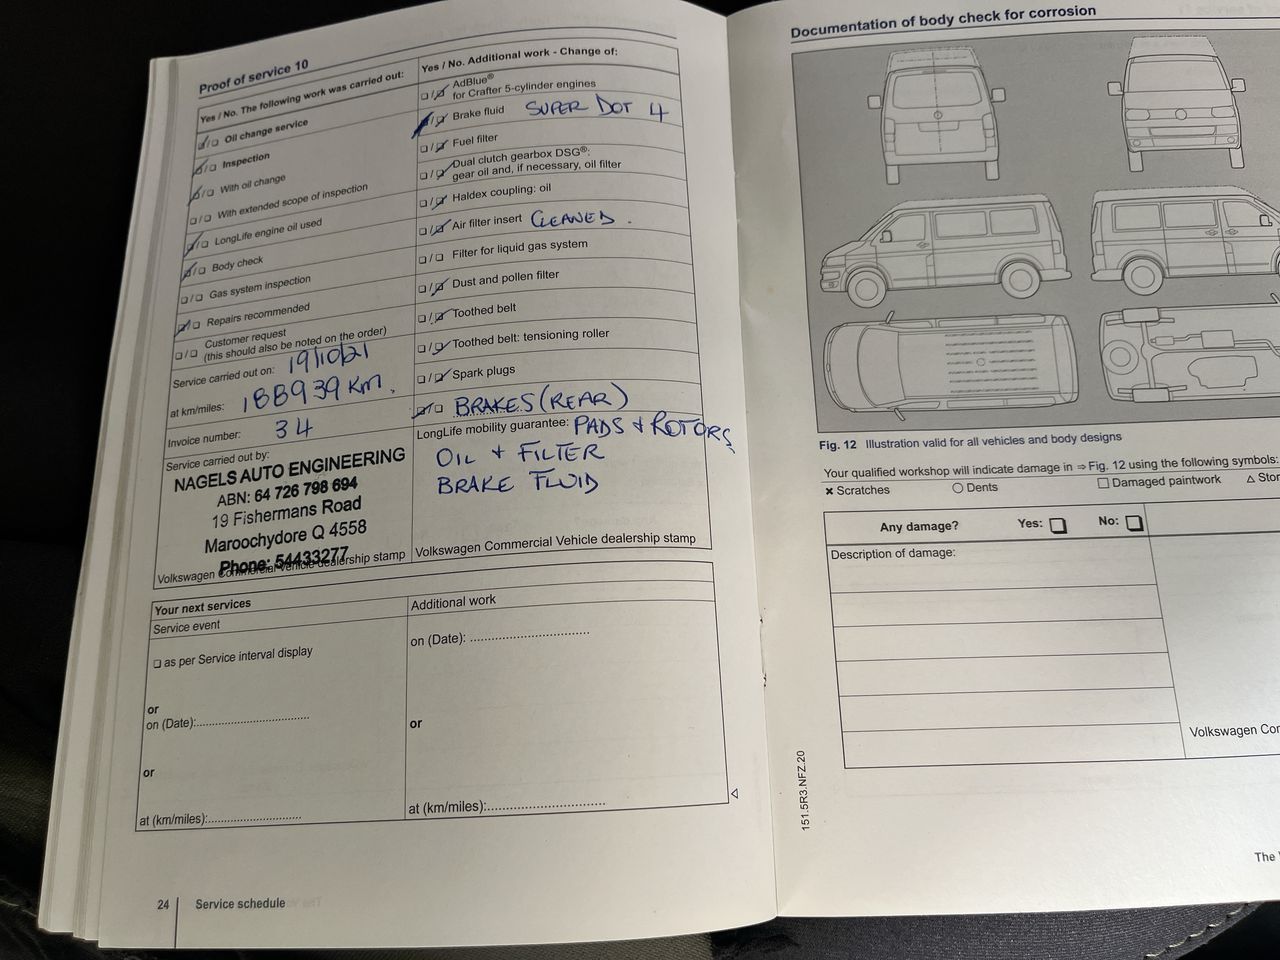 Proof of service 10
Yes / No. The following work was carried out:
❑/❑ Oil change service
❑/❑ Inspection
❑/❑ With oil change
❑/❑ With extended scope of inspection
❑/❑ LongLife engine oil used
❑/❑ Body check
❑/❑ Gas system inspection
❑/❑ Repairs recommended
❑/❑ Customer request
(this should also be noted on the order)
Service carried out on: 19/10/21
at km/miles: 188939 Km.
Invoice number: 34
Service carried out by:
NAGELS AUTO ENGINEERING
ABN: 64 726 798 694
19 Fishermans Road
Maroochydore Q 4558
Phone: 54433277
Volkswagen Commercial Vehicle dealership stamp
Yes / No. Additional work - Change of:
❑/❑ AdBlue®
for Crafter 5-cylinder engines
❑/❑ Brake fluid SUPER DOT 4
❑/❑ Fuel filter
❑/❑ Dual clutch gearbox DSG®:
gear oil and, if necessary, oil filter
❑/❑ Haldex coupling: oil
❑/❑ Air filter insert CLEANED.
❑/❑ Filter for liquid gas system
❑/❑ Dust and pollen filter
❑/❑ Toothed belt
❑/❑ Toothed belt: tensioning roller
❑/❑ Spark plugs
❑/❑ BRAKES (REAR)
LongLife mobility guarantee: PADS + ROTORS
OIL + FILTER
BRAKE FLUID
Volkswagen Commercial Vehicle dealership stamp
Your next services
Service event
❑ as per Service interval display
or
on (Date):..............................
or
at (km/miles):.........................
Additional work
on (Date): ................................
or
at (km/miles):..............................
24 Service schedule
Documentation of body check for corrosion
Fig. 12 Illustration valid for all vehicles and body designs
Your qualified workshop will indicate damage in ⇒ Fig. 12 using the following symbols:
× Scratches ○ Dents □ Damaged paintwork △ Stor
Any damage? Yes: ❑ No: ❑
Description of damage:
Volkswagen Cor
151.5R3.NFZ.20
The